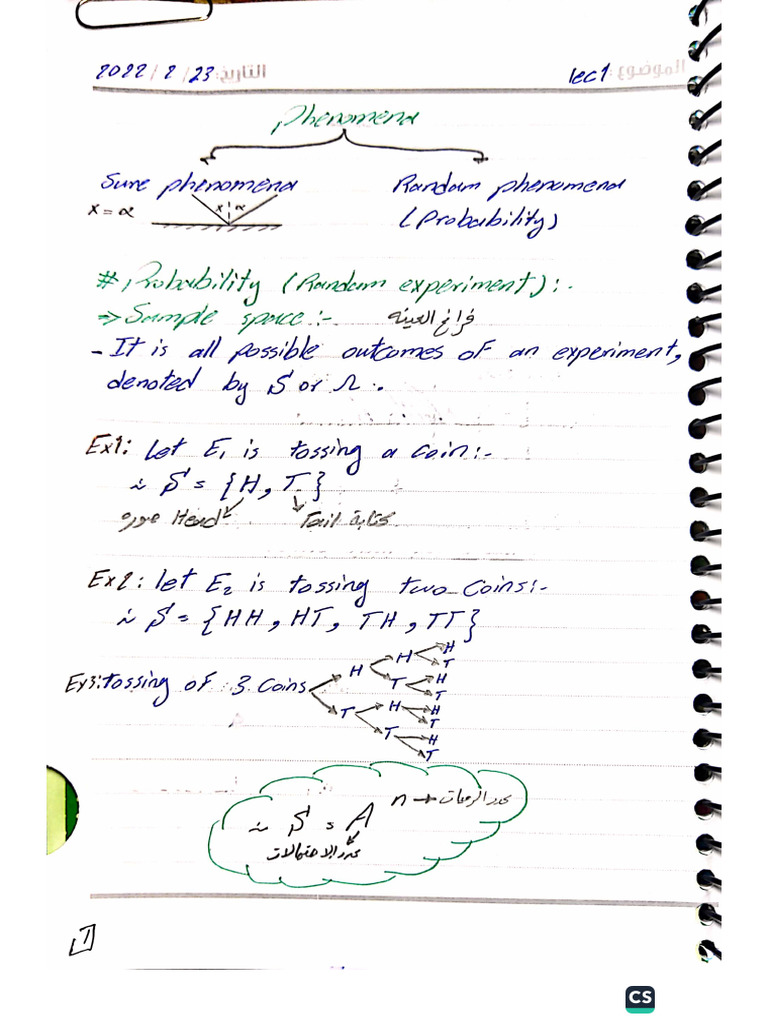 2022/2/23 التاريخ: lec1 الموضوع:
Phenomena
Sure phenomena Random phenomena
x = α x α (Probability)
# Probability (Random experiment):-
⇒ Sample space:- فراغ العينه
- It is all possible outcomes of an experiment,
denoted by S or Ω.
Ex1: Let E₁ is tossing a coin:-
∴ S = {H, T.}
صوره Head Tail كتابة
Ex2: let E₂ is tossing two coins:-
∴ S = {HH, HT, TH, TT}
Ex3: tossing of 3 coins H H H
T
T H
T
T H H
T
T H
T
n → عدد الرميات
∴ S = A
عدد الاحتمالات
1
CS